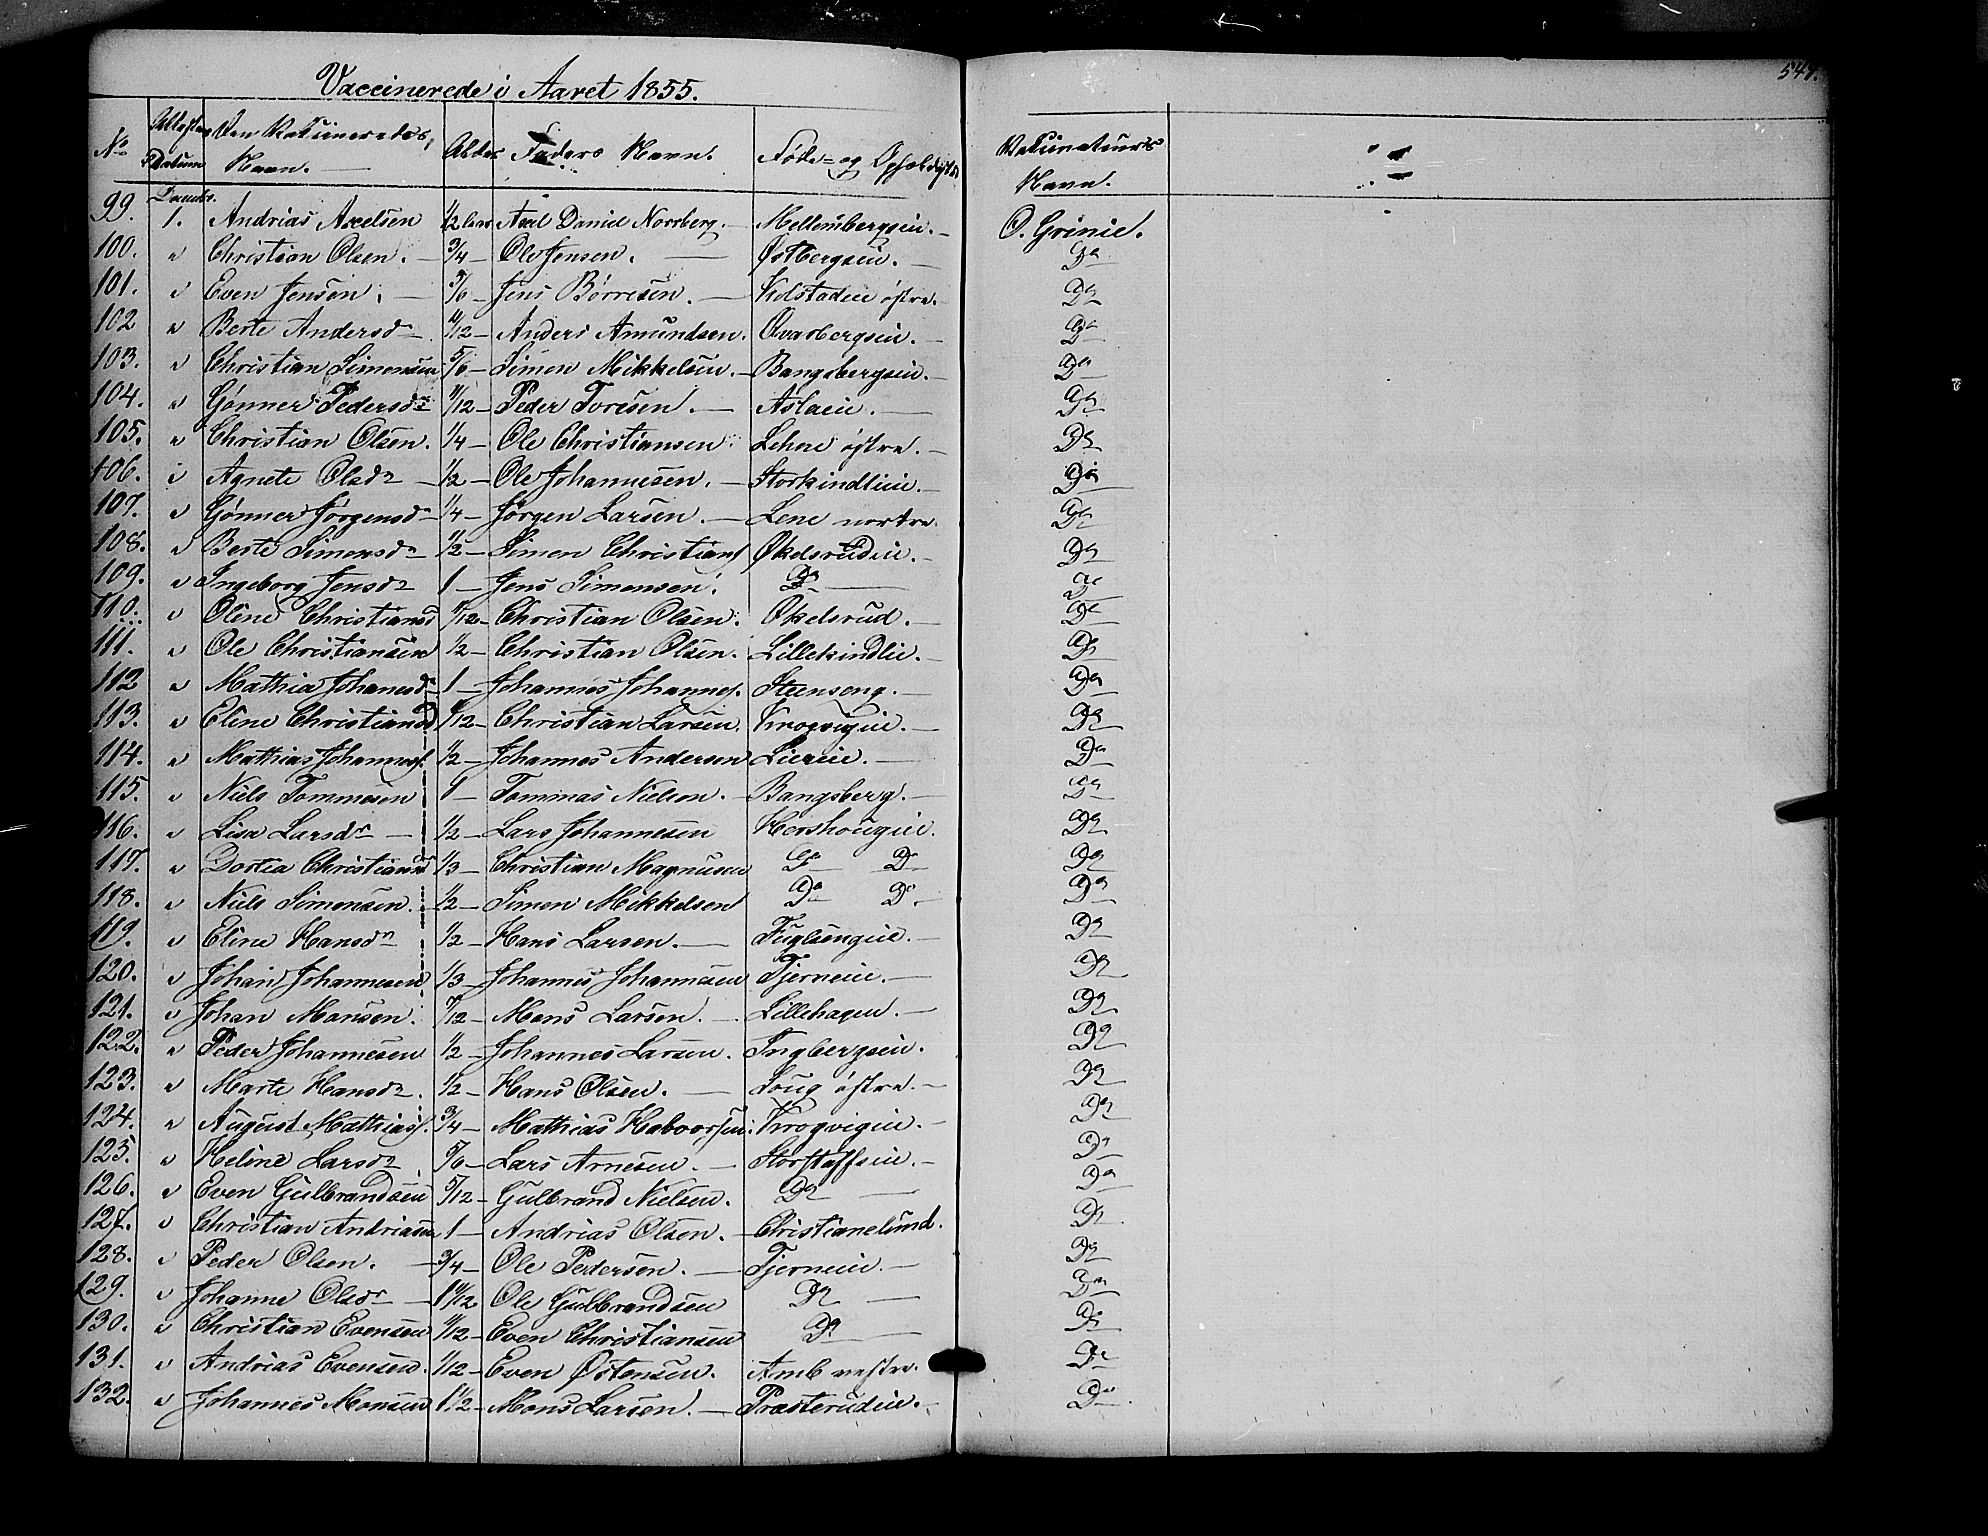 547.
Vaccinerede i Aaret 1855.
No Attestens Datum Den Vakcineredes Navn. Alder Faders Navn. Føde- og Opholdssted Vakcinateurs Navn.
Decembr.
99. 1. Andrias Axelsen 1/2 Aar Axel Daniel Norrberg. Mellembergseie. O. Grinie.
100. " Christian Olsen. 3/4 Ole Jensen. Østbergseie. Do
101. " Even Jensen. 5/6 Jens Børresen. Kolstadeie østre. Do
102 " Berte Andersdr 11/12 Anders Amundsen. Qvarbergseie. Do
103. " Christian Simensen 5/6 Simen Mikkelsen. Bangsbergseie. Do
104. " Gønner Pedersdr 11/12 Peder Toresen. Aslaeie. Do
105. " Christian Olsen. 1/4 Ole Christiansen. Lehne østre. Do
106. " Agnete Olsdr 1/2 Ole Johannesen. Storkindlieie. Do
107. " Gønner Jørgensdr 1/4 Jørgen Larsen. Lene nortre. Do
108. " Berte Simensdr 1/2 Simen Christians. Økelsrudeie. Do
109. " Ingeborg Jensdr 1 Jens Simensen. Do Do
110. " Oline Christiansd 11/12 Christian Olsen. Økelsrud. Do
111. " Ole Christiansen 1/2 Christian Olsen. Lillekindlie. Do
112 " Mathia Johanesdr 1 Johannes Johannes. Steenseng. Do
113. " Eline Christiansd /12 Christian Larsen. Krogvigeie. Do
114. " Mathias Johannes. 1/2 Johannes Andersen Lieeie. Do
115. " Niels Tommesen 1 Tommas Nielsen. Bangsberg. Do
116. " Lise Larsdr 1/2 Lars Johannesen Hershougeie. Do
117. " Dortea Christiansd 1/3 Christian Magnusen Do Do Do
118. " Niels Simensen. 1/2 Simen Mikkelsen Do Do Do
119. " Eline Hansdr 1/2 Hans Larsen. Fuglsengeie. Do
120. " Johan Johannesen 1/3 Johannes Johannesen Tjerneeie. Do
121. " Johan Monsen. 7/12 Mons Larsen. Lillehagen. Do
122. " Peder Johannesen 1/2 Johannes Larsen. Ingbergseie. Do
123. " Marte Hansdr. 1/2 Hans Olsen. Houg østre. Do
124. " August Mathias. 3/4 Mathias Haborsen. Krogvigeie. Do
125. " Heline Larsdr 5/6 Lars Arnesen. Storstaffseie. Do
126. " Even Gulbrandsen 5/12 Gulbrand Nielsen. Do Do
127. " Christian Andriasen 1 Andrias Olsen. Christianelund. Do
128. " Peder Olsen. 3/4 Ole Pedersen. Tjerneeie. Do
129. " Johanne Olsdr 1/12 Ole Gulbrandsen Do Do
130. " Christian Evensen /12 Even Christiansen Do Do
131. " Andrias Evensen. /12 Even Østensen. Arneb vestre. Do
132. " Johannes Monsen 1 1/2 Mons Larsen. Præsterudeie. Do